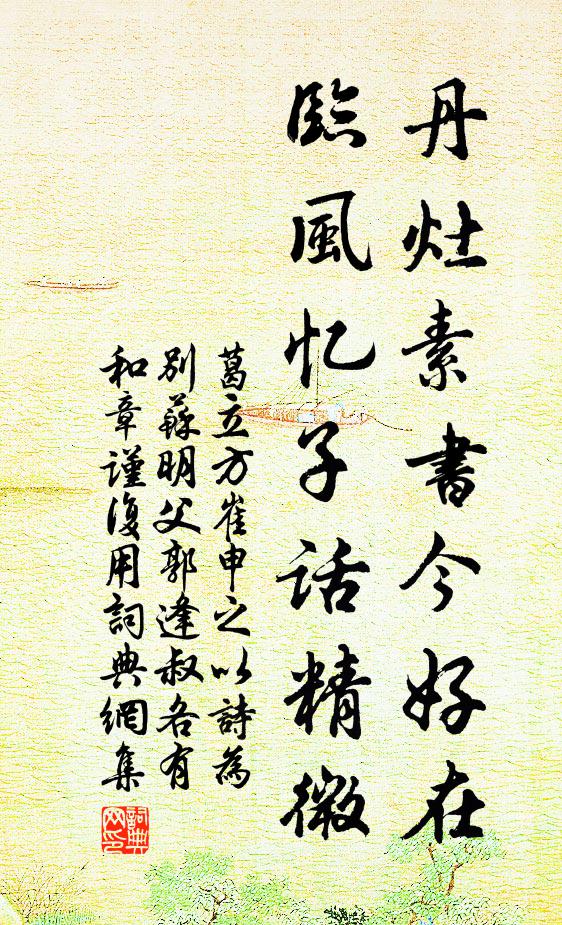 丹灶素書今好在
臨風忆子话精微
葛立方崔申之以詩為
别蘇明父郭逢叔各有
和章谨復用詞典網集
詞典
网印